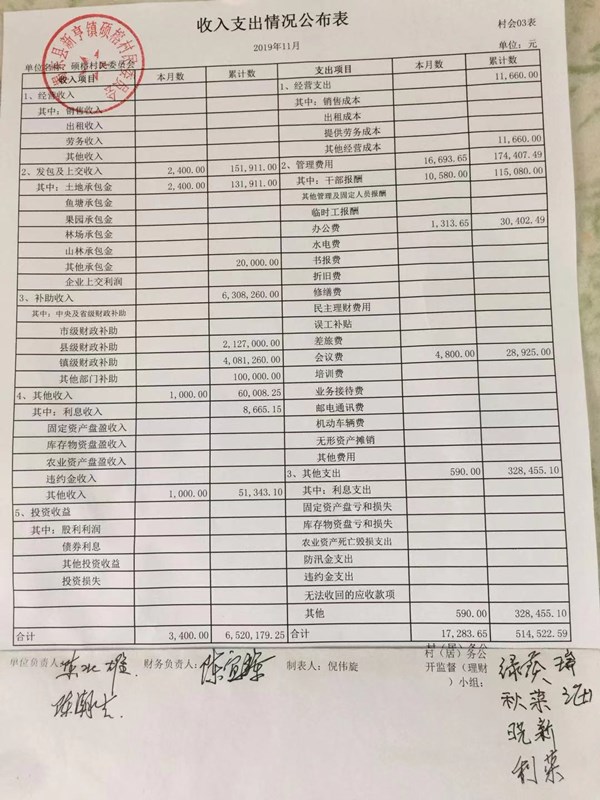 收入支出情况公布表
村会03表
2019年11月
单位名称：硕榕村民委员会 单位：元
收入项目 本月数 累计数 支出项目 本月数 累计数
1、经营收入 1、经营支出 11,660.00
其中：销售收入 其中：销售成本
出租收入 出租成本
劳务收入 提供劳务成本
其他收入 其他经营成本 11,660.00
2、发包及上交收入 2,400.00 151,911.00 2、管理费用 16,693.65 174,407.49
其中：土地承包金 2,400.00 131,911.00 其中：干部报酬 10,580.00 115,080.00
鱼塘承包金 其他管理及固定人员报酬
果园承包金 临时工报酬
林场承包金 办公费 1,313.65 30,402.49
山林承包金 水电费
其他承包金 20,000.00 书报费
企业上交利润 折旧费
3、补助收入 6,308,260.00 修缮费
其中：中央及省级财政补助 民主理财费用
市级财政补助 误工补贴
县级财政补助 2,127,000.00 差旅费
镇级财政补助 4,081,260.00 会议费 4,800.00 28,925.00
其他部门补助 100,000.00 培训费
4、其他收入 1,000.00 60,008.25 业务接待费
其中：利息收入 8,665.15 邮电通讯费
固定资产盘盈收入 机动车辆费
库存物资盘盈收入 无形资产摊销
农业资产盘盈收入 其他费用
违约金收入 3、其他支出 590.00 328,455.10
其他收入 1,000.00 51,343.10 其中：利息支出
5、投资收益 固定资产盘亏和损失
其中：股利利润 库存物资盘亏和损失
债券利息 农业资产死亡毁损支出
其他投资收益 防汛金支出
投资损失 违约金支出
无法收回的应收款项
其他 590.00 328,455.10
合计 3,400.00 6,520,179.25 合计 17,283.65 514,522.59
单位负责人： 财务负责人： 制表人：倪伟旋 村（居）务公开监督（理财）小组：
秋菜
晓新
利荣